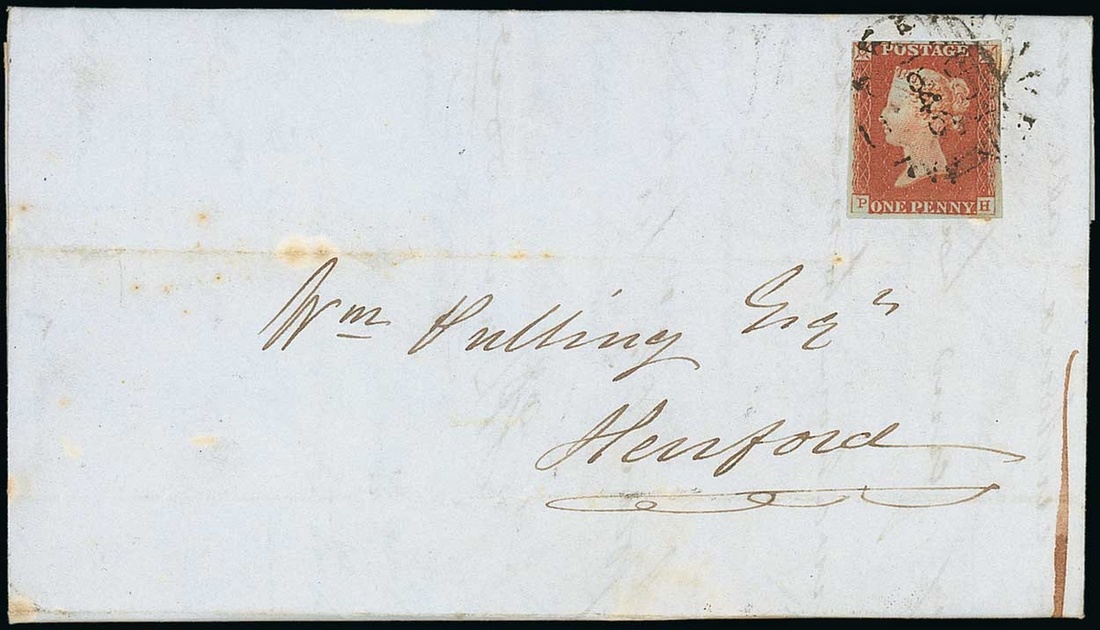 POSTAGE
P ONE PENNY H
Wm Pulling Esqr
Hereford